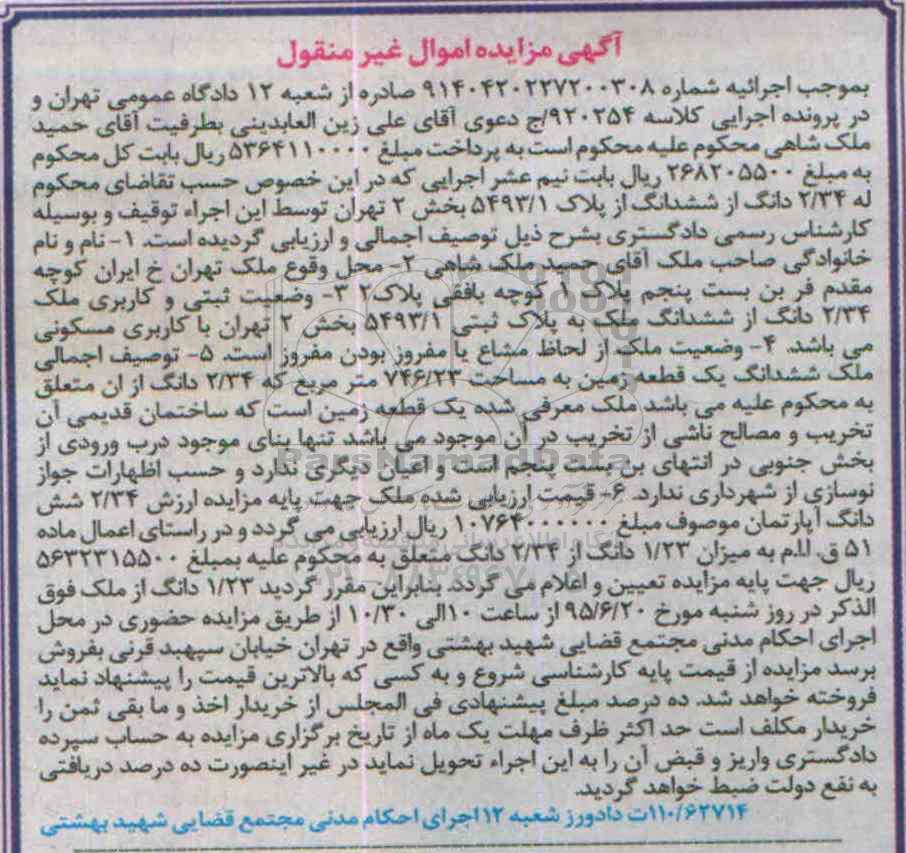 آگهی مزایده اموال غیر منقول
بموجب اجرائیه شماره ۹۱۴۰۴۲۰۲۲۷۲۰۰۳۰۸ صادره از شعبه ۱۲ دادگاه عمومی تهران و
در پرونده اجرایی کلاسه ۹۲۰۲۵۴/ج دعوی آقای علی زین العابدینی بطرفیت آقای حمید
ملک شاهی محکوم علیه محکوم است به پرداخت مبلغ ۵۳۶۴۱۱۰۰۰۰ ریال بابت کل محکوم
به مبلغ ۲۶۸۲۰۵۵۰۰ ریال بابت نیم عشر اجرایی که در این خصوص حسب تقاضای محکوم
له ۲/۳۴ دانگ از ششدانگ از پلاک ۵۴۹۳/۱ بخش ۲ تهران توسط این اجراء توقیف و بوسیله
کارشناس رسمی دادگستری بشرح ذیل توصیف اجمالی و ارزیابی گردیده است. ۱- نام و نام
خانوادگی صاحب ملک آقای حمید ملک شاهی ۲- محل وقوع ملک تهران خ ایران کوچه
مقدم فر بن بست پنجم پلاک ۱ کوچه بافقی پلاک۲ ۳- وضعیت ثبتی و کاربری ملک
۲/۳۴ دانگ از ششدانگ ملک به پلاک ثبتی ۵۴۹۳/۱ بخش ۲ تهران با کاربری مسکونی
می باشد. ۴- وضعیت ملک از لحاظ مشاع یا مفروز بودن مفروز است. ۵- توصیف اجمالی
ملک ششدانگ یک قطعه زمین به مساحت ۷۴۶/۲۳ متر مربع که ۲/۳۴ دانگ از ان متعلق
به محکوم علیه می باشد ملک معرفی شده یک قطعه زمین است که ساختمان قدیمی آن
تخریب و مصالح ناشی از تخریب در آن موجود می باشد تنها بنای موجود درب ورودی از
بخش جنوبی در انتهای بن بست پنجم است و اعیان دیگری ندارد و حسب اظهارات جواز
نوسازی از شهرداری ندارد. ۶- قیمت ارزیابی شده ملک جهت پایه مزایده ارزش ۲/۳۴ شش
دانگ آپارتمان موصوف مبلغ ۱۰۷۶۴۰۰۰۰۰۰ ریال ارزیابی می گردد و در راستای اعمال ماده
۵۱ ق.ا.ا.م به میزان ۱/۲۳ دانگ از ۲/۳۴ دانگ متعلق به محکوم علیه بمبلغ ۵۶۳۲۳۱۵۵۰۰
ریال جهت پایه مزایده تعیین و اعلام می گردد. بنابراین مقرر گردید ۱/۲۳ دانگ از ملک فوق
الذکر در روز شنبه مورخ ۹۵/۶/۲۰ از ساعت ۱۰الی ۱۰/۳۰ از طریق مزایده حضوری در محل
اجرای احکام مدنی مجتمع قضایی شهید بهشتی واقع در تهران خیابان سپهبد قرنی بفروش
برسد مزایده از قیمت پایه کارشناسی شروع و به کسی که بالاترین قیمت را پیشنهاد نماید
فروخته خواهد شد. ده درصد مبلغ پیشنهادی فی المجلس از خریدار اخذ و ما بقی ثمن را
خریدار مکلف است حد اکثر ظرف مهلت یک ماه از تاریخ برگزاری مزایده به حساب سپرده
دادگستری واریز و قبض آن را به این اجراء تحویل نماید در غیر اینصورت ده درصد دریافتی
به نفع دولت ضبط خواهد گردید.
۱۱۰/۶۲۷۱۴ت دادورز شعبه ۱۲ اجرای احکام مدنی مجتمع قضایی شهید بهشتی
ParsNamadData